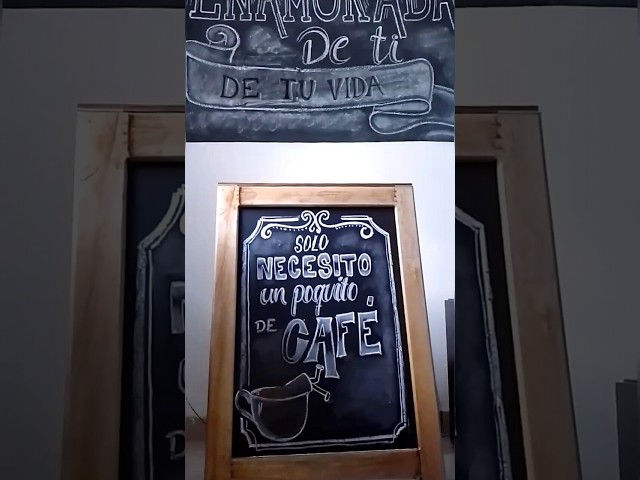 ENAMORADA
De ti
DE TU VIDA
SOLO
NECESITO
un poquito
DE CAFÉ